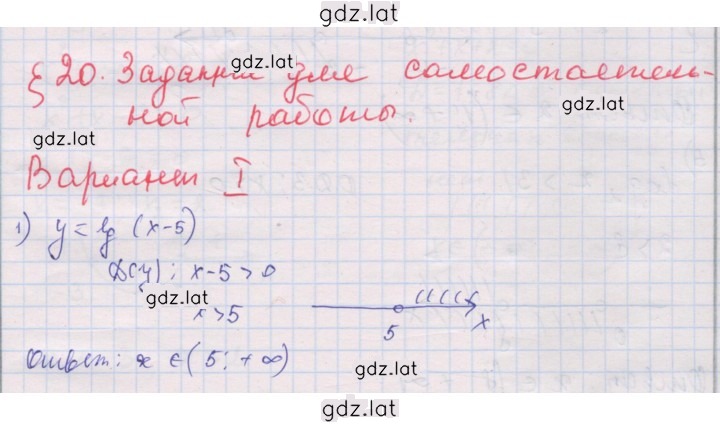 gdz.lat
§ 20. Задания для самостоятель-
gdz.lat
ной работы.
gdz.lat
gdz.lat
Вариант I
1) y = lg (x-5)
D(y): x-5 > 0
gdz.lat
x > 5
5 x
Ответ: x ∈ (5; +∞)
gdz.lat
gdz.lat